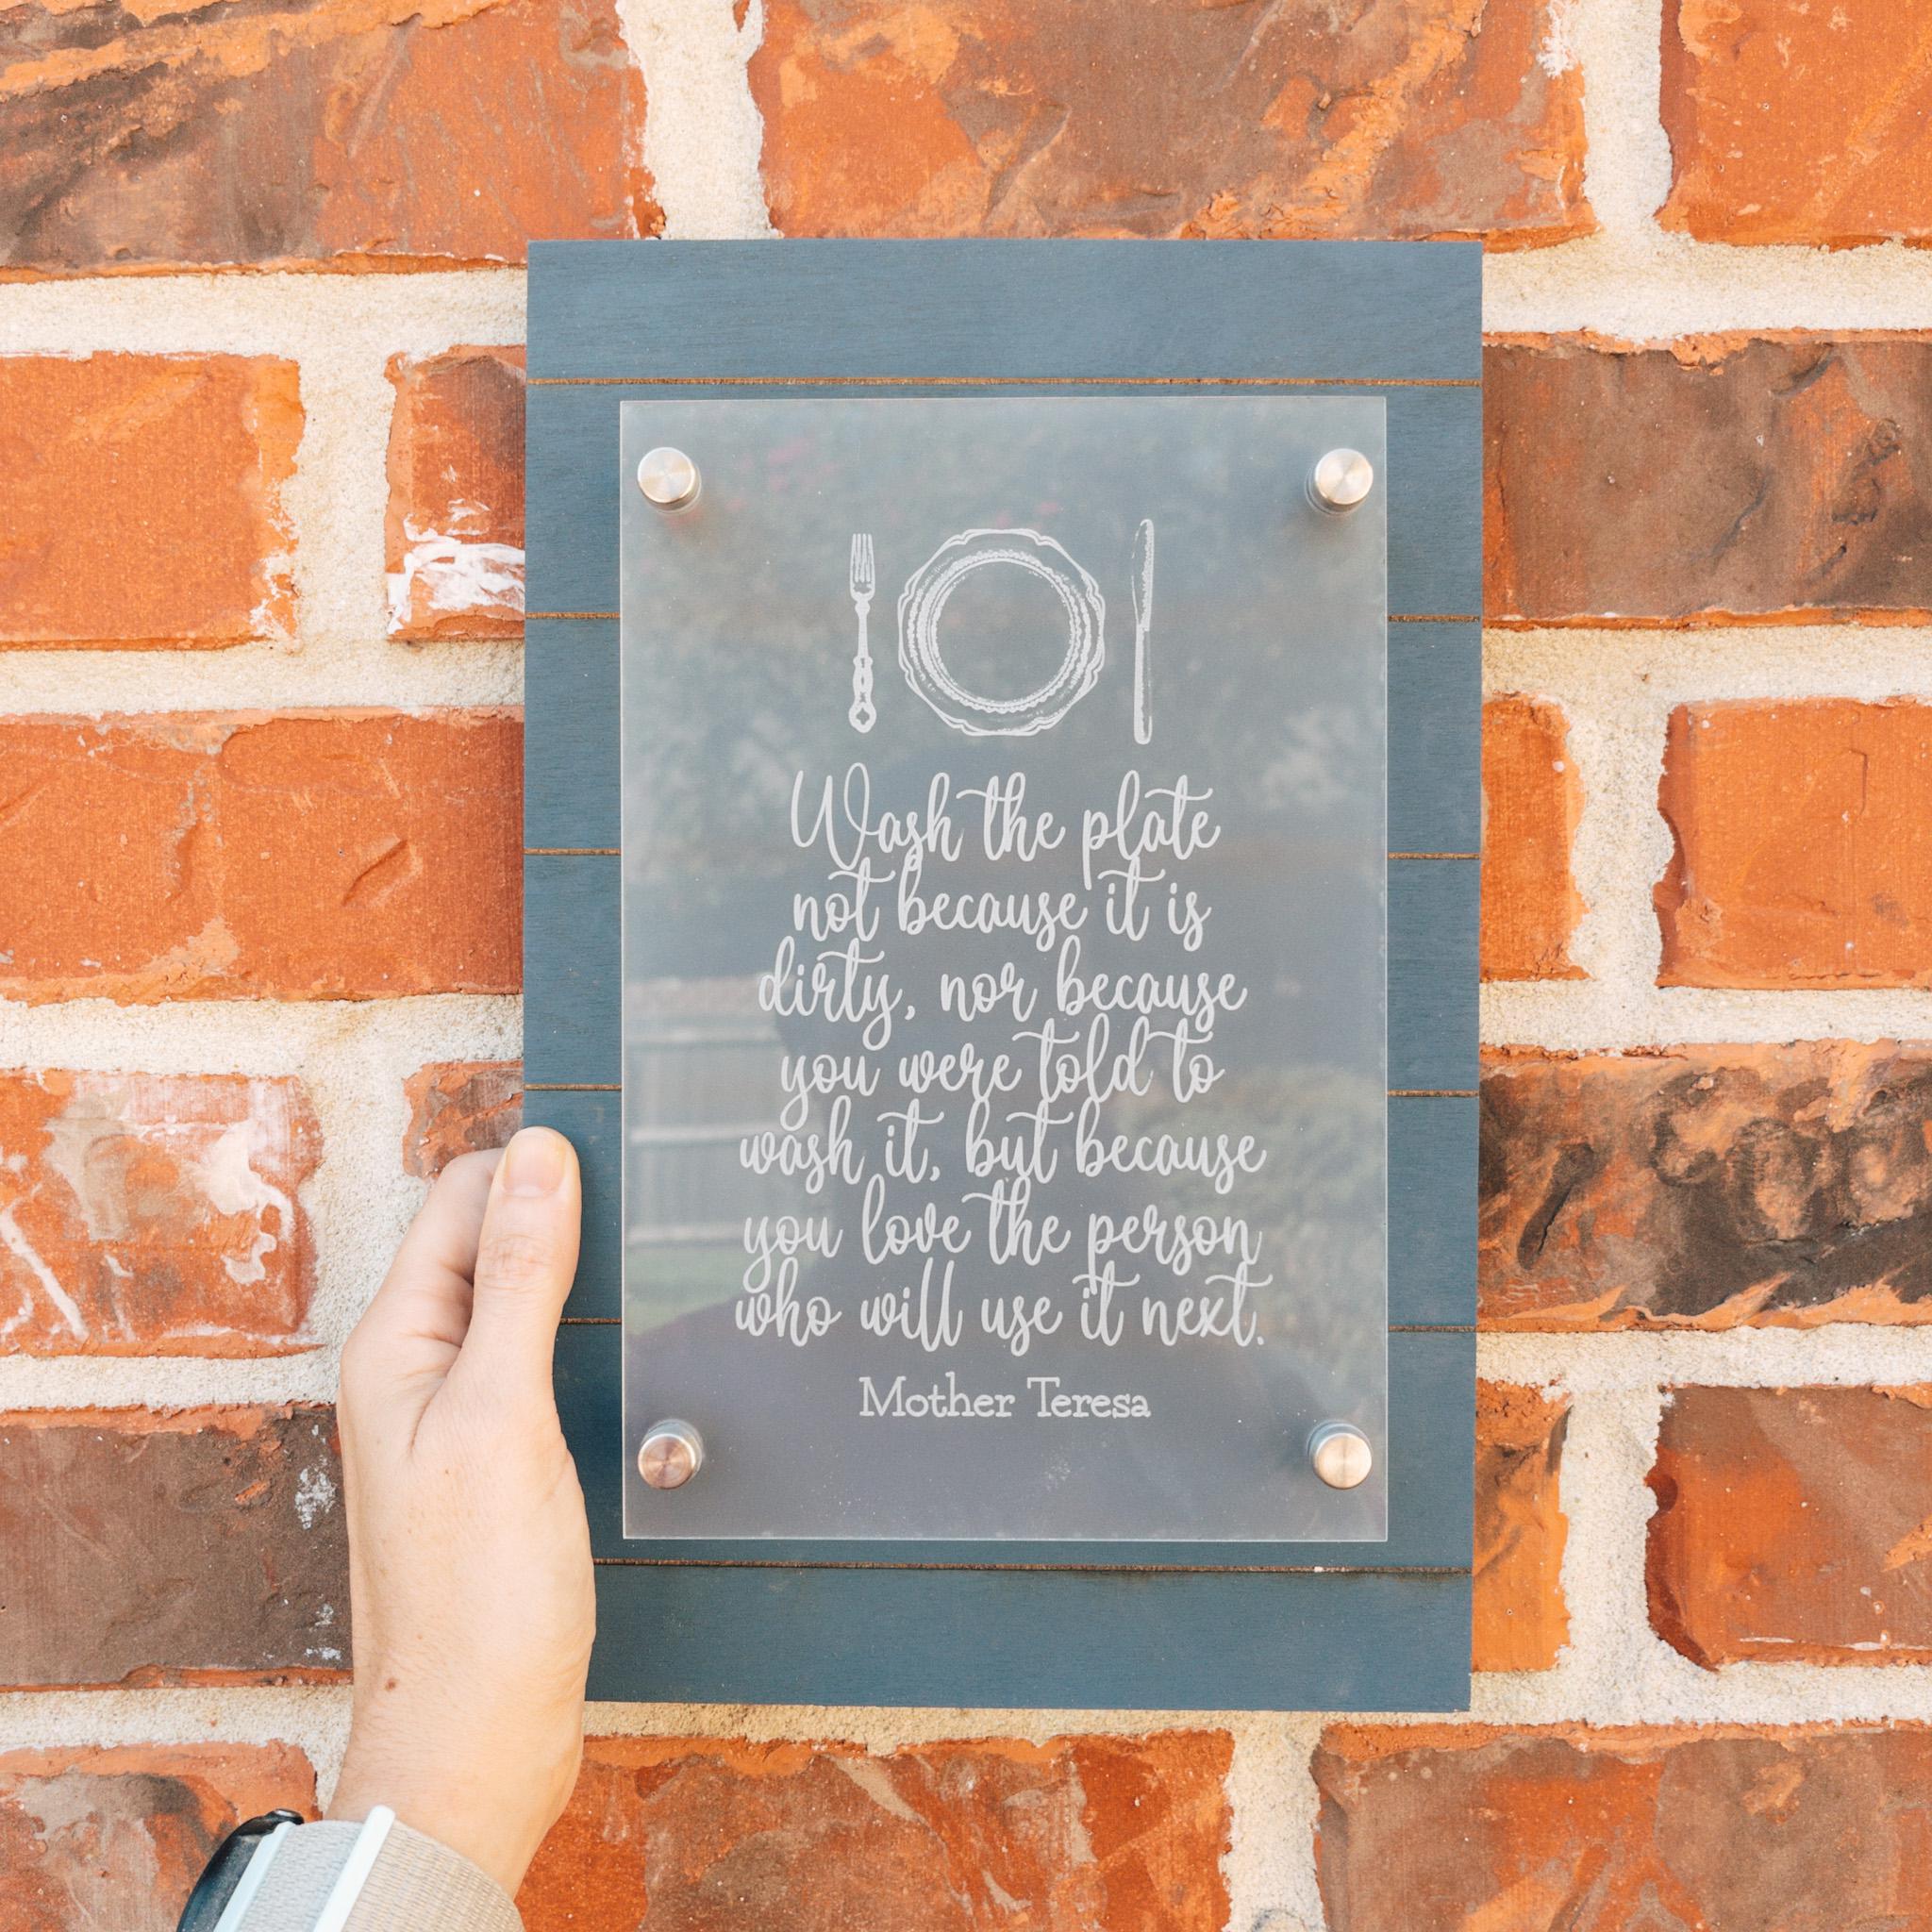 Wash the plate
not because it is
dirty, nor because
you were told to
wash it, but because
you love the person
who will use it next.
Mother Teresa